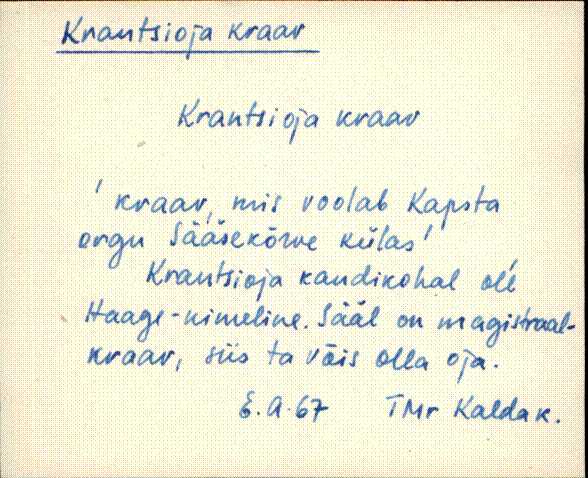 Krantsioja kraav
Krantsioja kraav
'kraav, mis voolab Kapsta
orgu Sääsekõrve külas'
Krantsioja kandikohal oĺĺ
Haage-nimeline. Sääl on magistraal-
kraav, siis ta võis olla oja.
E.A.67 TMr Kaldak.